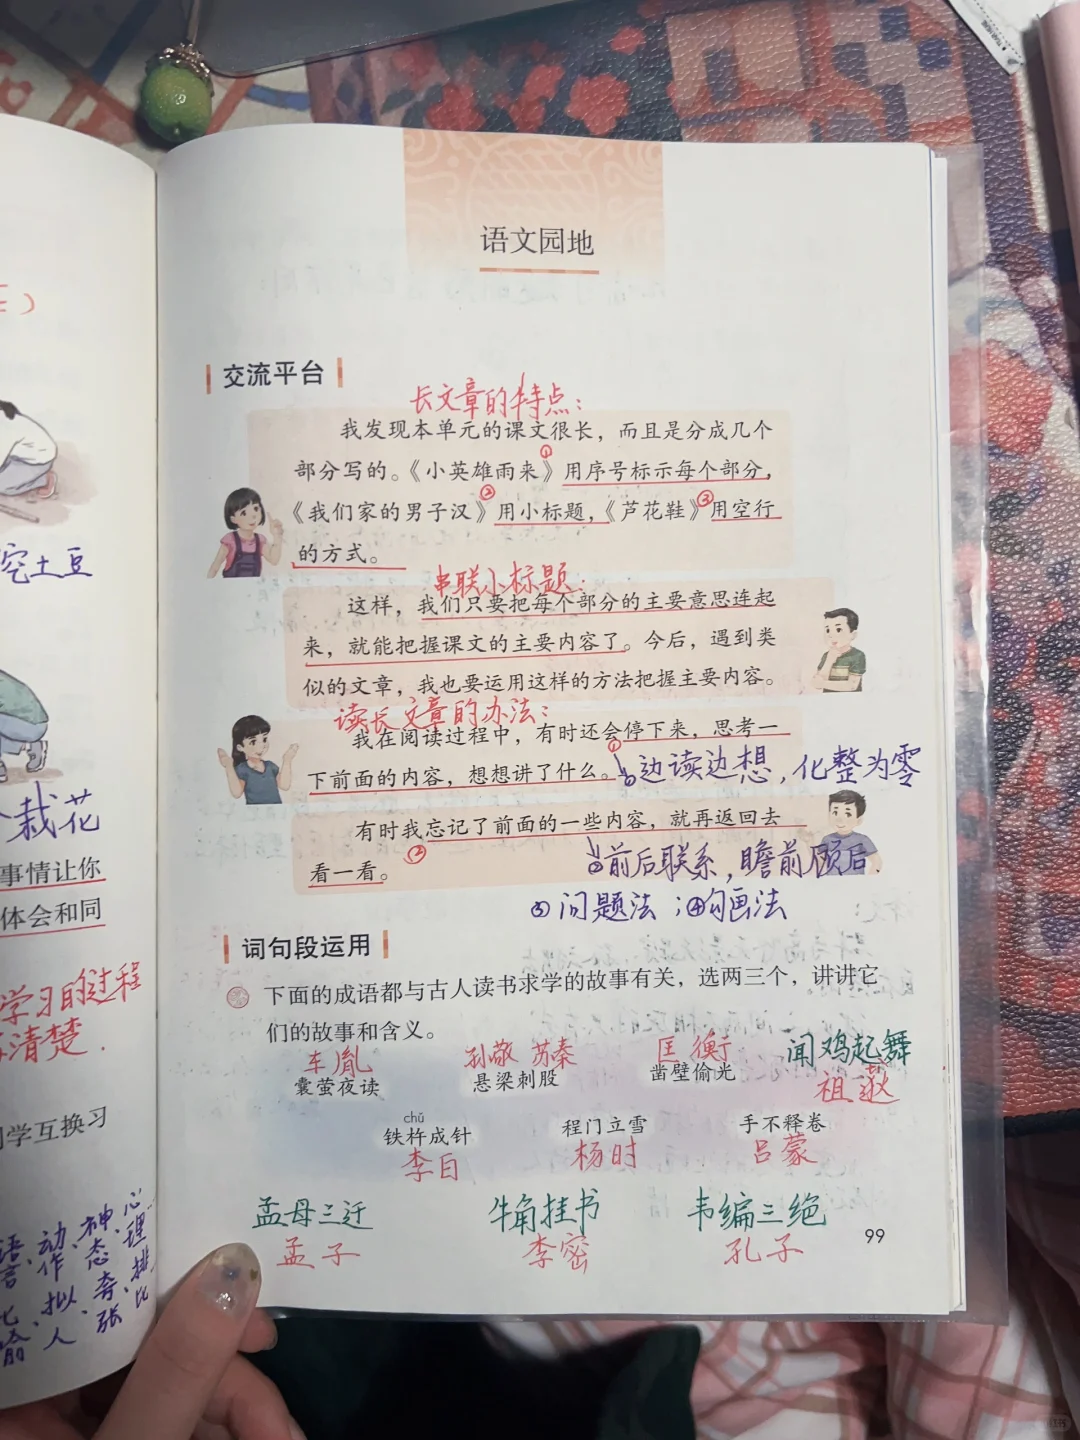 挖土豆
栽花
事情让你
体会和同
学习的过程
清楚.
同学互换习
语言、动作、神态、心理、
比喻、拟人、夸张、排比
语文园地
交流平台
长文章的特点：
我发现本单元的课文很长，而且是分成几个
①
部分写的。《小英雄雨来》用序号标示每个部分，
② ③
《我们家的男子汉》用小标题，《芦花鞋》用空行
的方式。
串联小标题：
这样，我们只要把每个部分的主要意思连起
来，就能把握课文的主要内容了。今后，遇到类
似的文章，我也要运用这样的方法把握主要内容。
读长文章的办法：
我在阅读过程中，有时还会停下来，思考一
①
下前面的内容，想想讲了什么。①边读边想，化整为零
有时我忘记了前面的一些内容，就再返回去
②
看一看。 ②前后联系，瞻前顾后.
③问题法；④勾画法
词句段运用
下面的成语都与古人读书求学的故事有关，选两三个，讲讲它
们的故事和含义。
车胤 孙敬 苏秦 匡衡 闻鸡起舞
囊萤夜读 悬梁刺股 凿壁偷光 祖逖
chǔ
铁杵成针 程门立雪 手不释卷
李白 杨时 吕蒙
孟母三迁 牛角挂书 韦编三绝
孟子 李密 孔子
99